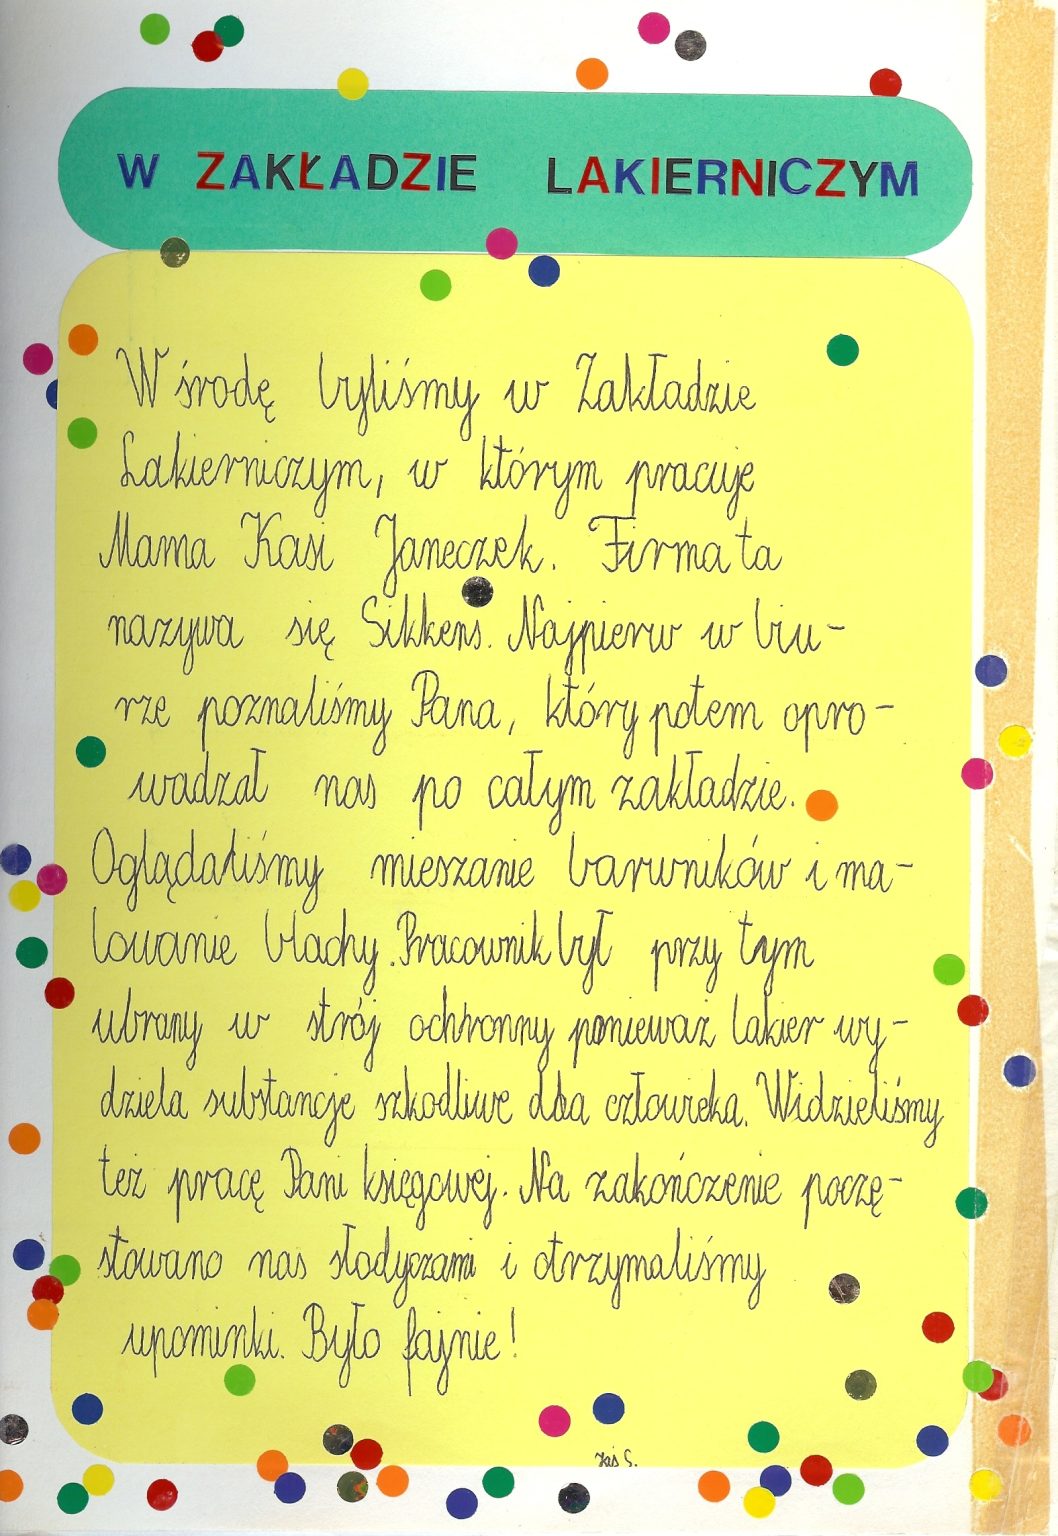 W ZAKŁADZIE LAKIERNICZYM
W środę byliśmy w Zakładzie
Lakierniczym, w którym pracuje
Mama Kasi Janeczek. Firma ta
nazywa się Sikkens. Najpierw w biu-
rze poznaliśmy Pana, który potem opro-
wadzał nas po całym zakładzie.
Oglądaliśmy mieszanie barwników i ma-
lowanie blachy. Pracownik był przy tym
ubrany w strój ochronny ponieważ lakier wy-
dziela substancje szkodliwe dla człowieka. Widzieliśmy
też pracę Pani księgowej. Na zakończenie poczę-
stowano nas słodyczami i otrzymaliśmy
upominki. Było fajnie!
S.